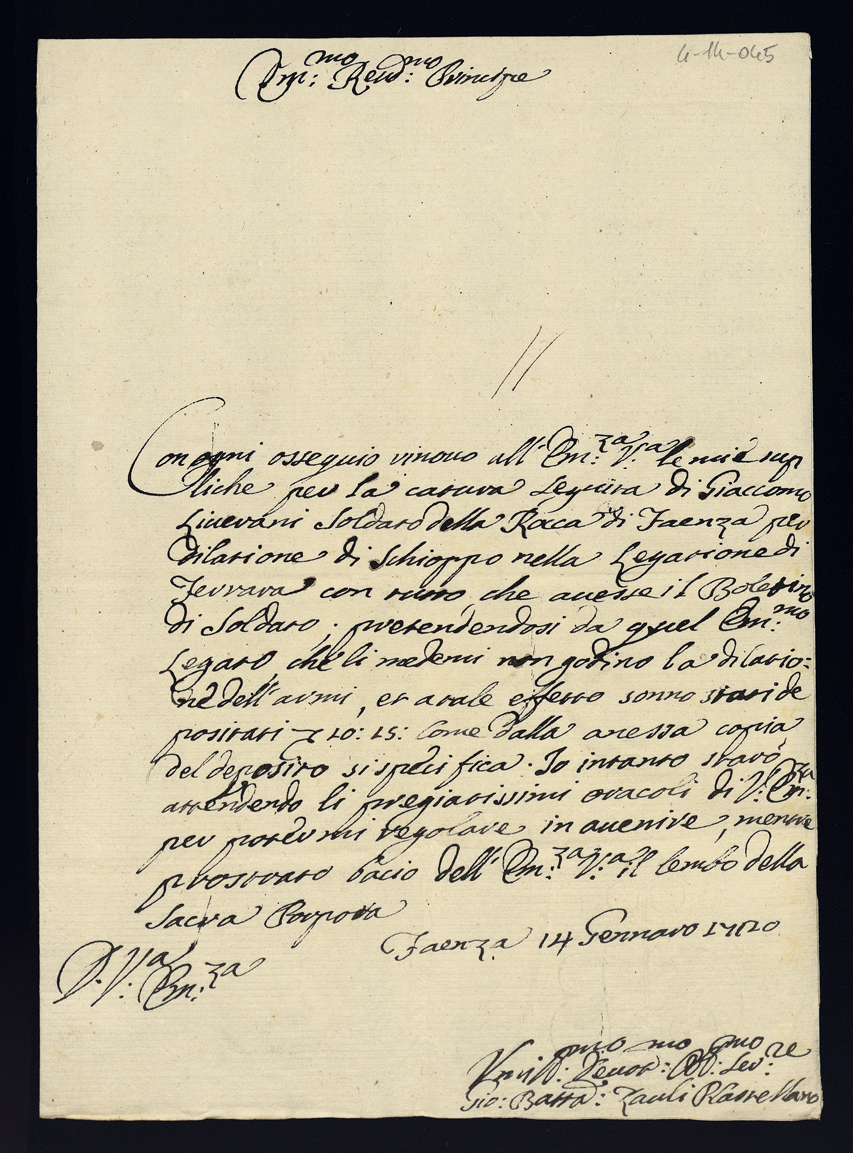 4-14-045
Em:mo Reud:mo Principe
Con ogni ossequio rinouo all' Em:za V:a le mie sup
pliche per la catura seguita di Giacomo
Liuerani Soldato della Roca di Faenza per
dilatione di schioppo nella Legatione di
Ferrara con tutto che auesse il Boletino
di Soldato; pretendendosi da quel Em:mo
Legato, che li medemi non godino la dilatio=
ne dell' armi, et a tale effetto sonno stati de
positati 10: 15: Come dalla anessa copia
del deposito si specifica. Io intanto starò
attendendo li pregiatissimi oracoli di V: Em:za
per potermi regolare in auenire, mentre
prostrato bacio dell' Em:za V:a il lembo della
Sacra Porpora
Faenza 14 Gennaro 1720
D. V:a Em:za
Vmill:mo Deuot:mo Obb:mo Ser:re
Gio: Batta: Zauli Castellano